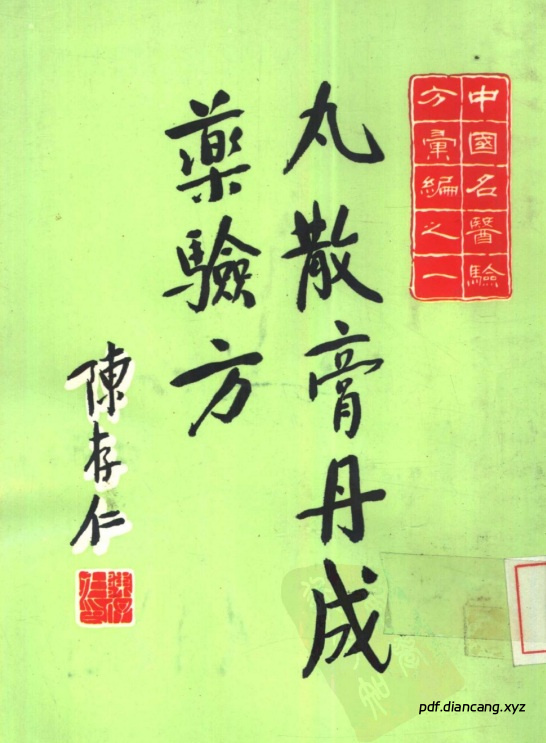 中國名醫驗
方彙編之一
丸散膏丹成
藥驗方
陳存仁
陳存
仁印
pdf.diancang.xyz